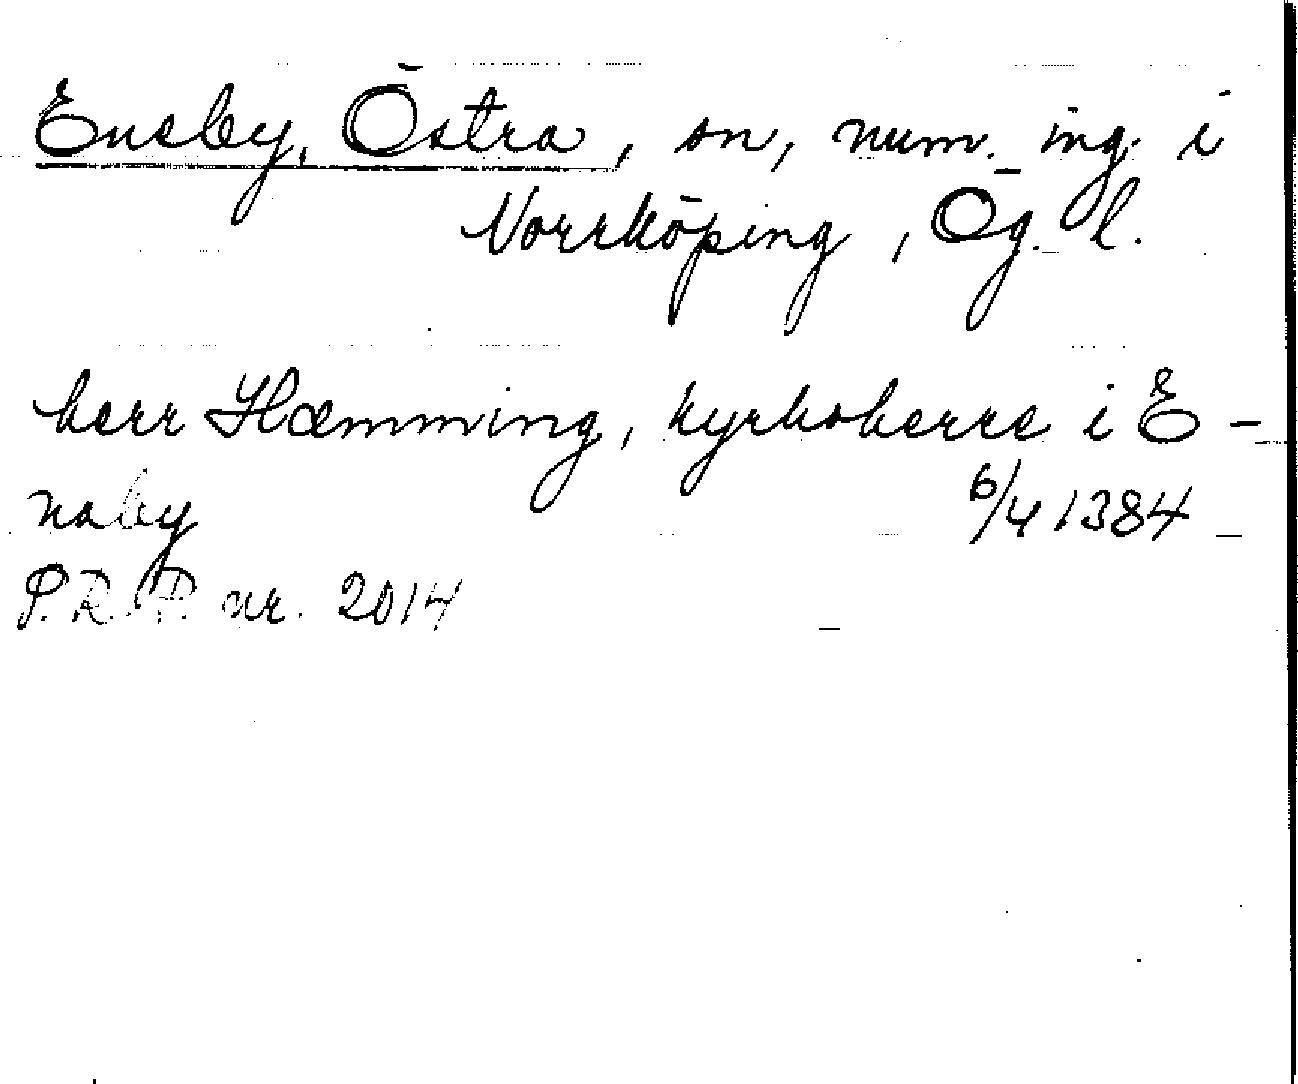 Eneby, Östra, sn, num. ing. i
Norrköping, Ög. l.
herr Hæmming, kyrkoherre i E-
naby 6/4 1384
P.R.P. nr. 2014